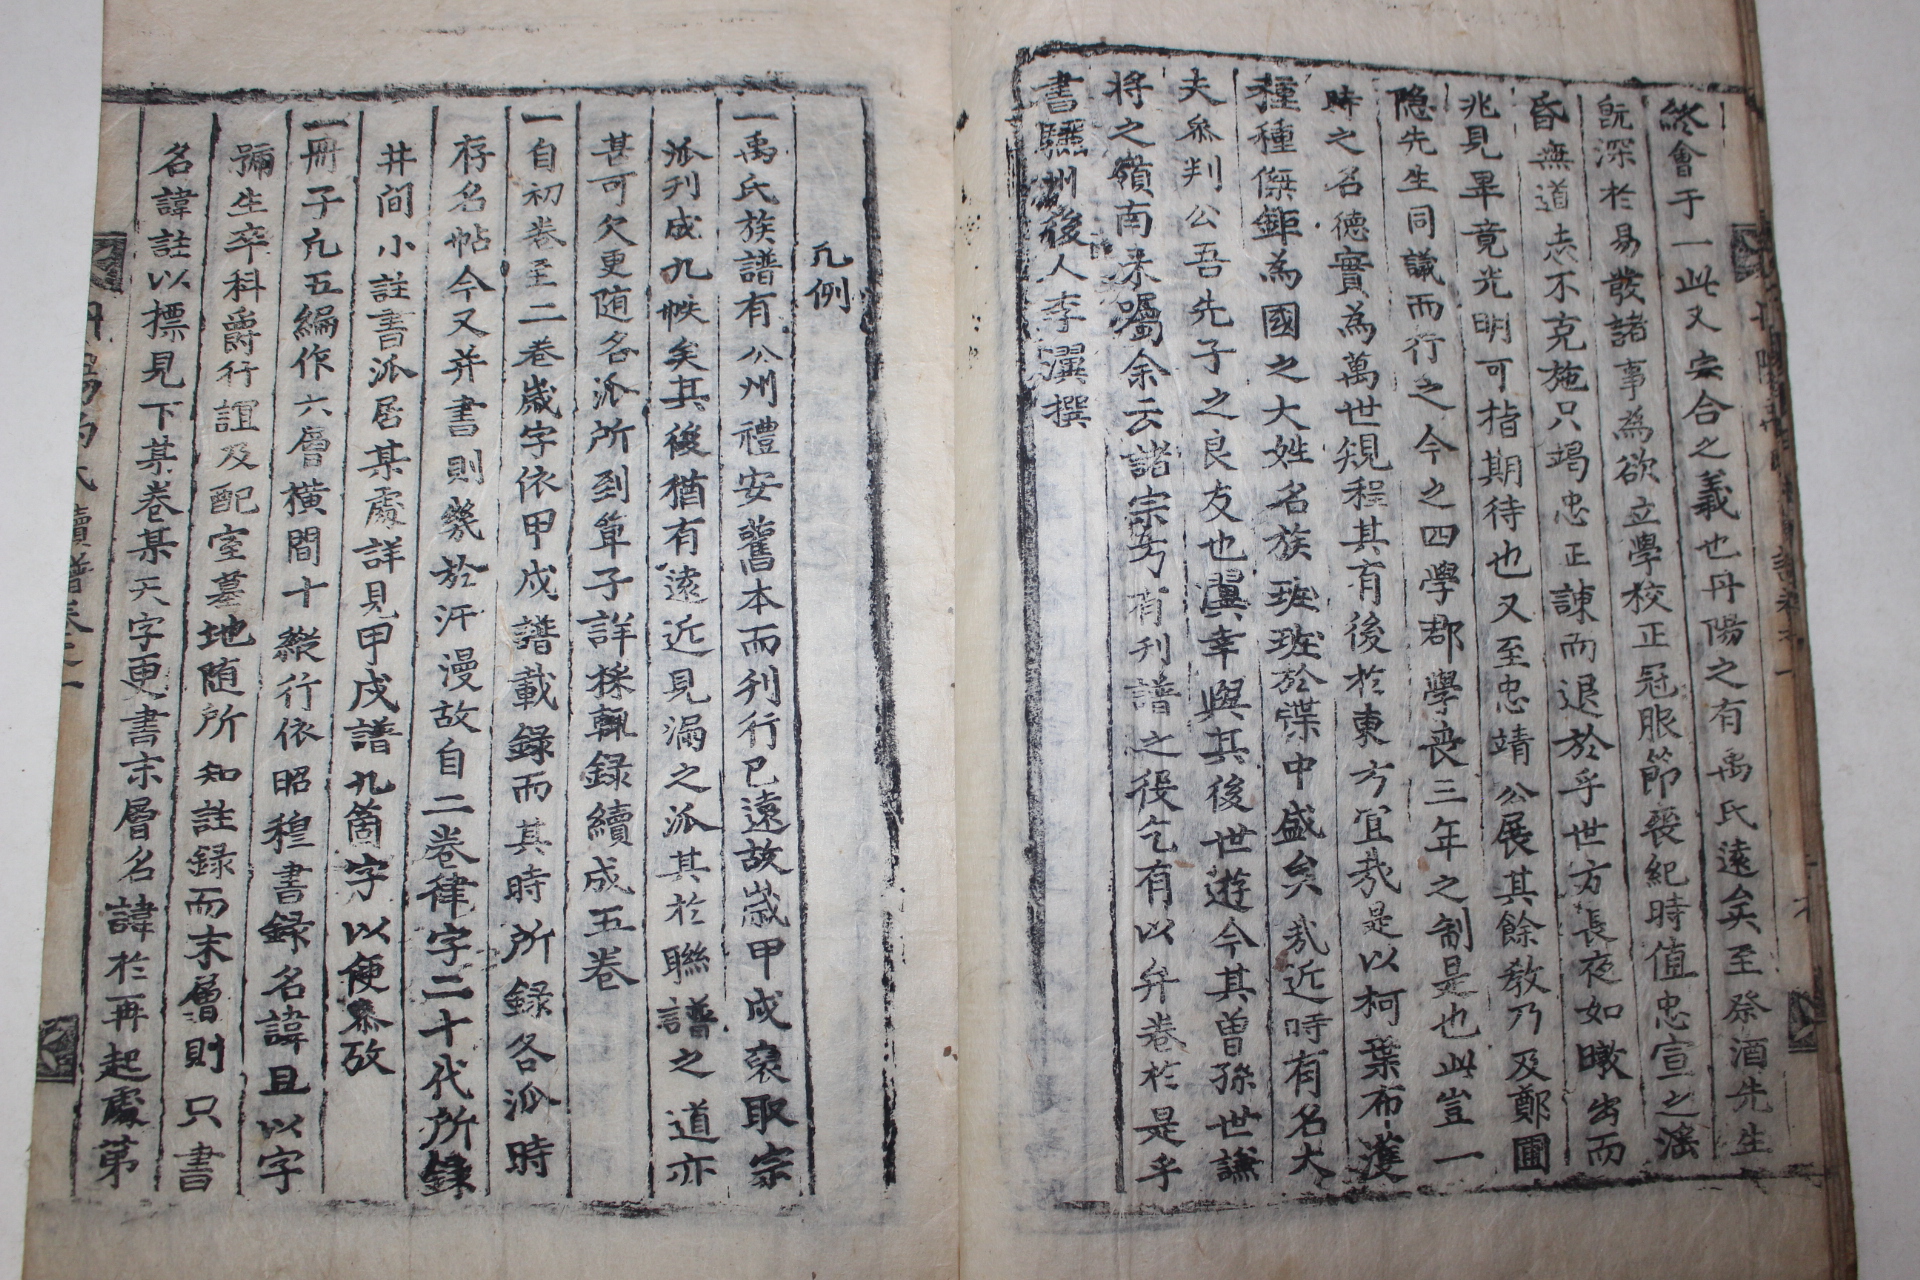 終會于一此又宗合之義也丹陽之有禹氏遠矣至祭酒先生
旣深於易發諸事為欲立學校正冠服節喪紀時值忠宣之滛
昏無道志不克施只竭忠正諫而退於乎世方長夜如暾出而
兆見畢竟光明可指期待也又至忠靖公展其餘敎乃及鄭圃
隐先生同議而行之今之四學郡學喪三年之制是也此豈一
時之名德實為萬世規程其有後於東方宜㢤是以柯葉布濩
種種傑鉅為國之大姓名族班班於諜中盛矣㢤近時有名大
夫叅判公吾先子之良友也瀷幸與其後世遊今其曽孫世謙
將之嶺南来囑余云諸宗方有刋譜之役乞有以弁卷於是乎
書驪州後人李瀷撰
凡例
一禹氏族譜有公州禮安舊本而刋行已遠故歲甲戍裒取宗
派刋成九帙矣其後猶有遠近見漏之派其於聯譜之道亦
甚可欠更随各派所到單子詳採輒錄續成五卷
一自初卷至二卷歲字依甲戍譜載錄而其時所錄各派時
存名帖今又并書則幾於汗漫故自二卷律字二十代所錄
井间小註書派居某處詳見甲戍譜九箇字以便叅攷
一冊子凡五編作六層橫間十縱行依昭穆書錄名諱且以字
號生卒科爵行誼及配室墓地随所知註録而末層則只書
名諱註以標見下某卷某天字更書末層名諱於再起處第